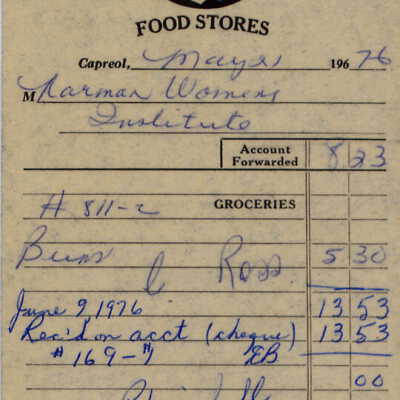 FOOD STORES
Capreol, May 31 196 76
M Norman Womens
Institute
Account Forwarded 8 23
# 811-2 GROCERIES
Buns 5 30
Ross
June 9 1976 13 53
Rec'd on acct (cheque) 13 53
# 169-4 EB
00